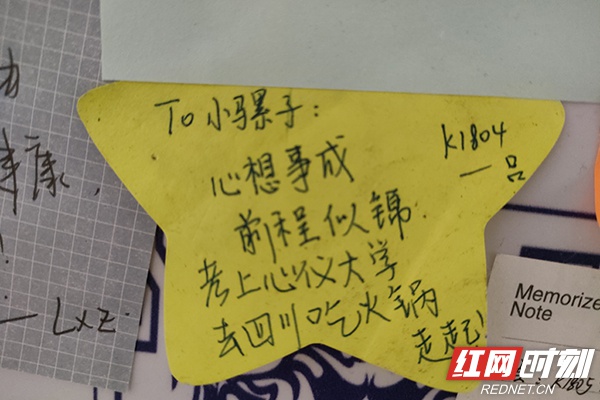 To 小骡子：
心想事成
前程似锦.
考上心仪大学
去四川吃火锅
走起!
K1804
一品
康,
— Lxz.
Memorize
Note
K1805
红网时刻
REDNET.CN